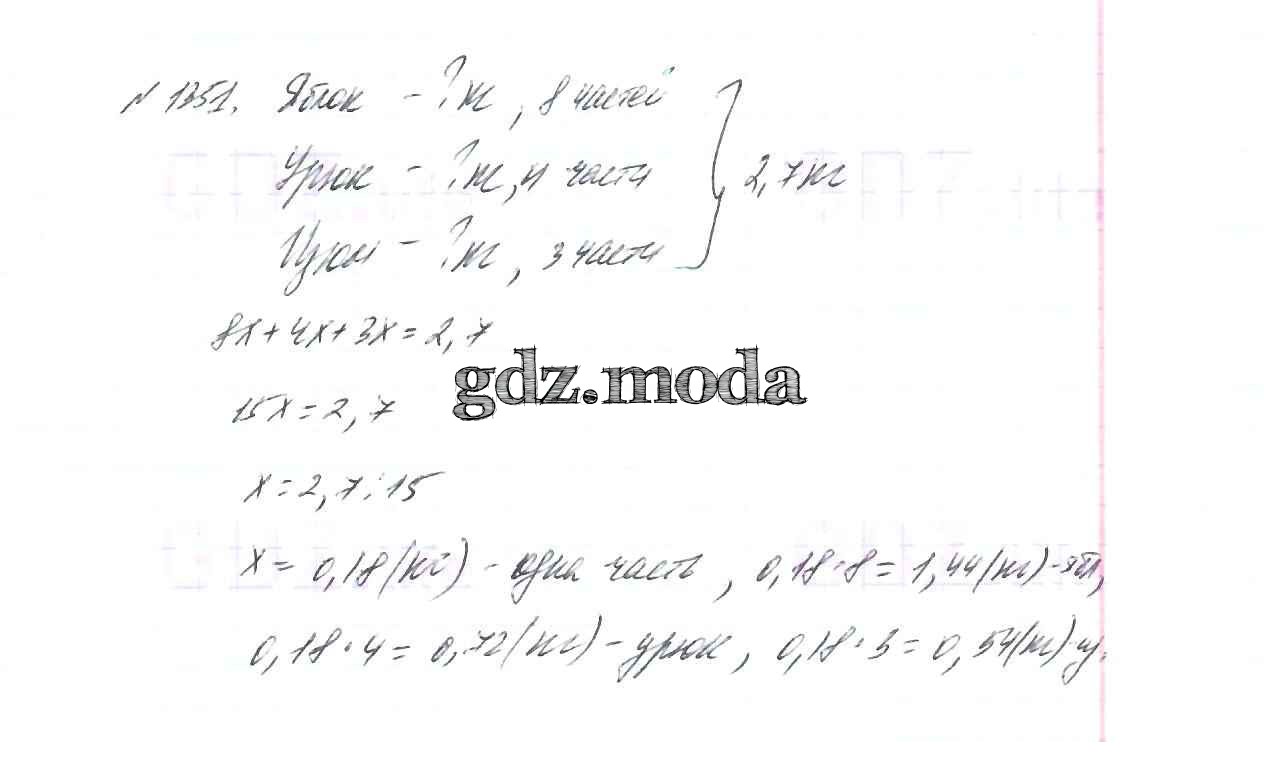 № 1351. Яблок - ? кг, 8 частей
Урюк - ? кг, 4 части } 2,7 кг
Изюм - ? кг, 3 части
8x + 4x + 3x = 2,7
gdz.moda
15x = 2,7
x = 2,7 : 15
x = 0,18 (кг) - одна часть, 0,18 · 8 = 1,44 (кг) - ябл,
0,18 · 4 = 0,72 (кг) - урюк, 0,18 · 3 = 0,54 (кг) -